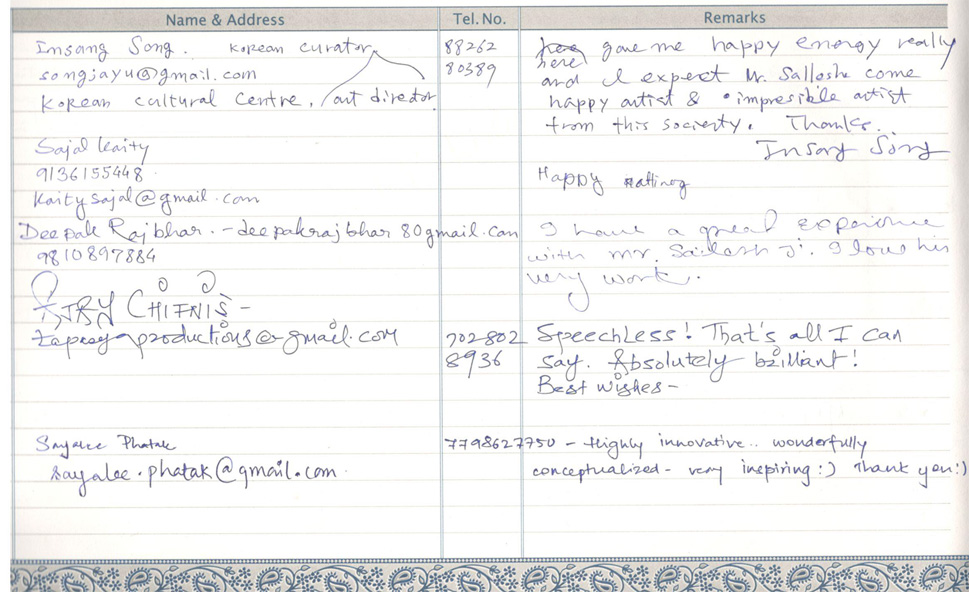 Name & Address Tel. No. Remarks
Insang Song. Korean curator 88262 here gave me happy energy really
songjayu@gmail.com 80389 and I expect Mr. Salloshe come
Korean Cultural Centre, / art director happy artist & impresible artist
from this socierty. Thanks.
Insang Song
Sajal Kaity
9136155448
Kaitysajal@gmail.com Happy
Deepak Rajbhar. - deepakrajbhar80gmail.com I have a great experience
9810897884 with mr. Sailesh Ji. I love his
very work.
CHIFNIS -
productions@gmail.com 702802 Speechless! That's all I can
8936 say. Absolutely brilliant!
Best wishes -
Sayalee Phatak 7798627750 - Highly innovative.. wonderfully
sayalee.phatak@gmail.com conceptualized - very inspiring :) Thank you :)